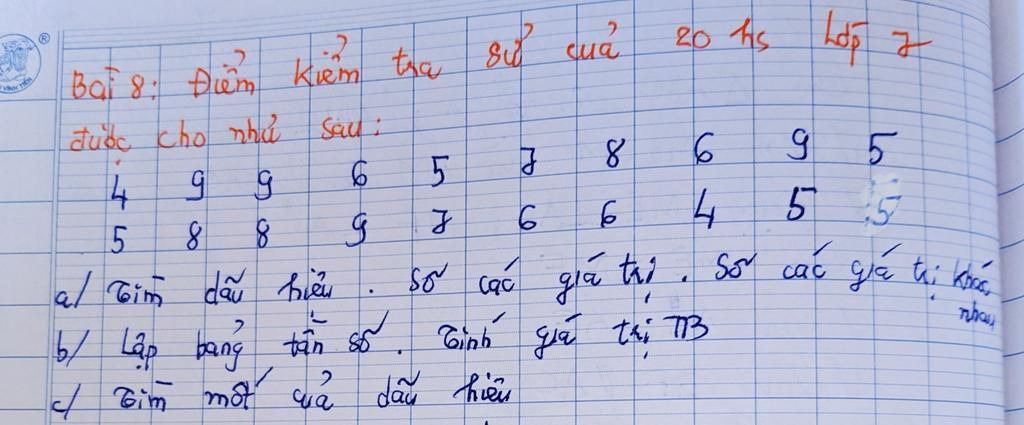 Bài 8: Điểm kiểm tra sử của 20 hs Lớp 7
được cho như sau:
4 9 9 6 5 7 8 6 9 5
5 8 8 9 7 6 6 4 5 5
a/ Tìm dấu hiệu. Số các giá trị. Số các giá trị khác nhau
b/ Lập bảng tần số. Tính giá trị TB
c/ Tìm mốt của dấu hiệu